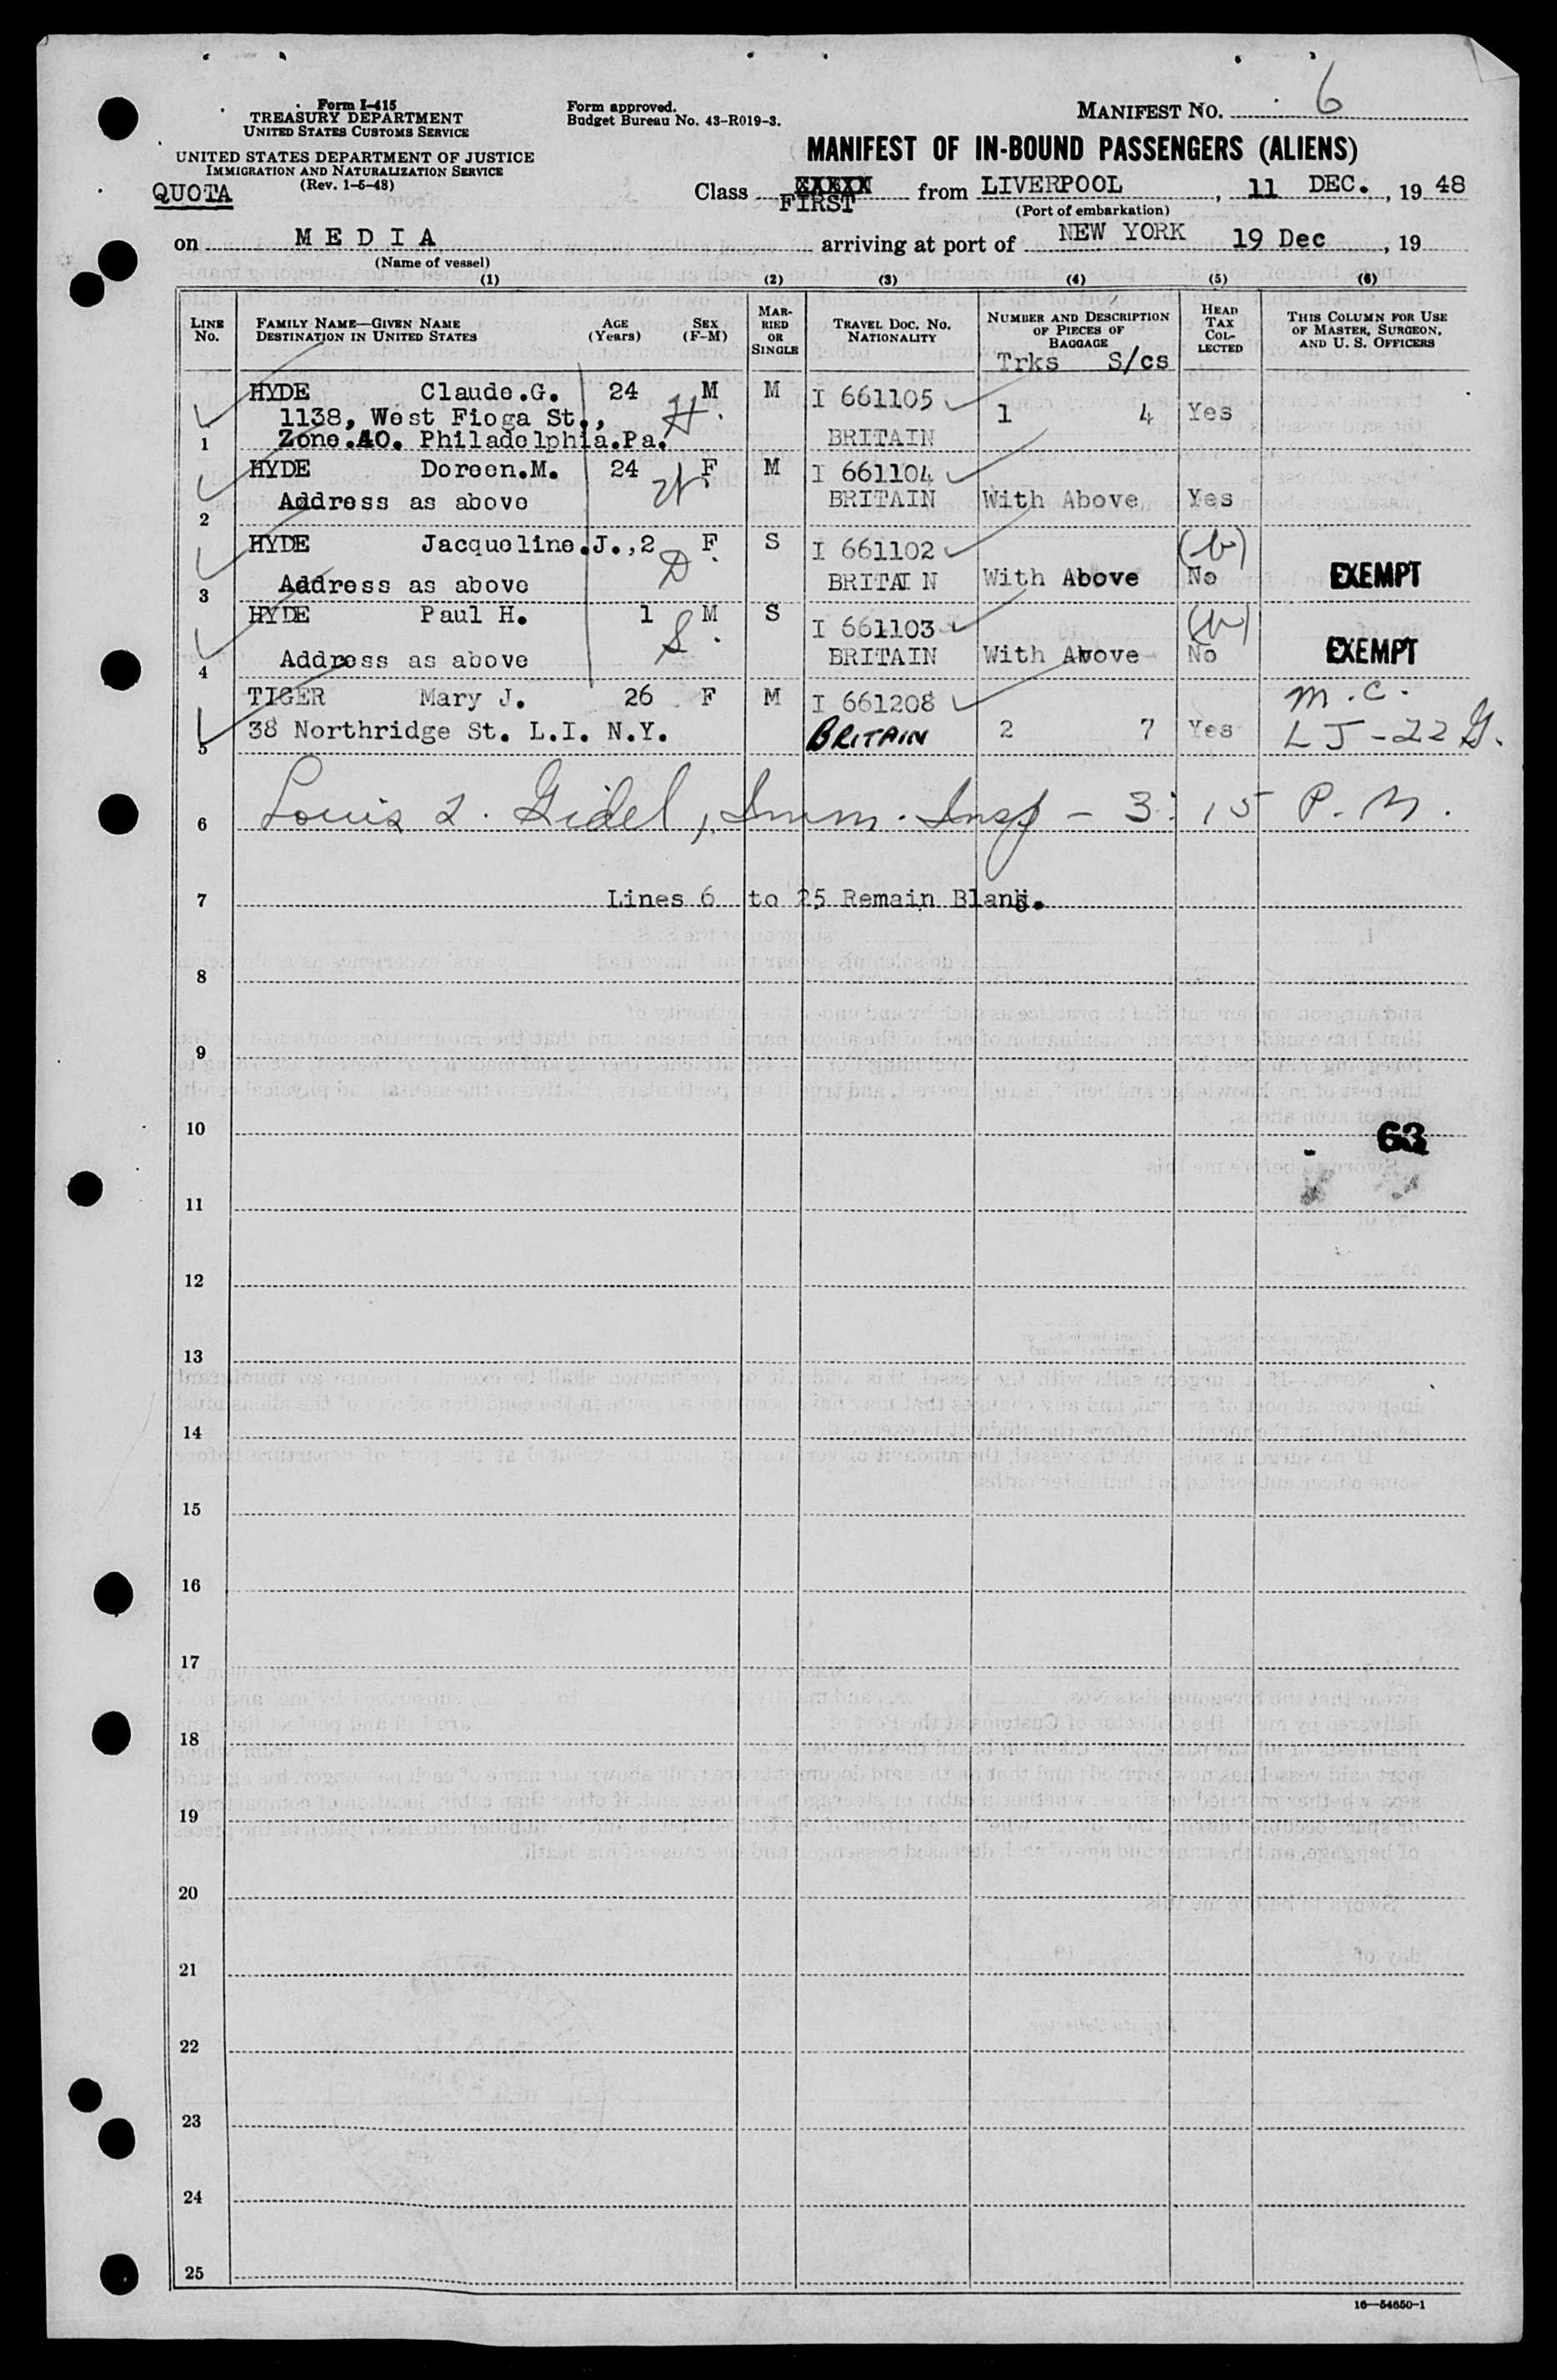 Form I-415
TREASURY DEPARTMENT
UNITED STATES CUSTOMS SERVICE
UNITED STATES DEPARTMENT OF JUSTICE
IMMIGRATION AND NATURALIZATION SERVICE
(Rev. 1-5-48)
QUOTA
Form approved.
Budget Bureau No. 43-R019-3.
MANIFEST NO. 6
MANIFEST OF IN-BOUND PASSENGERS (ALIENS)
Class FIRST from LIVERPOOL, 11 DEC., 19 48
(Port of embarkation)
on MEDIA arriving at port of NEW YORK 19 Dec, 19
(Name of vessel)
(1) (2) (3) (4) (5) (6)
LINE No. FAMILY NAME—GIVEN NAME DESTINATION IN UNITED STATES AGE (Years) SEX (F-M) MARRIED OR SINGLE TRAVEL DOC. NO. NATIONALITY NUMBER AND DESCRIPTION OF PIECES OF BAGGAGE HEAD TAX COLLECTED THIS COLUMN FOR USE OF MASTER, SURGEON, AND U. S. OFFICERS
Trks S/cs
HYDE Claude.G. 24 M M I 661105
1138, West Fioga St., H. 1 4 Yes
1 Zone.40. Philadelphia.Pa. BRITAIN
HYDE Doreen.M. 24 F M I 661104
Address as above W. BRITAIN With Above Yes
2
HYDE Jacqueline.J.,2 F S I 661102 (b)
3 Address as above D. BRITAI N With Above No EXEMPT
HYDE Paul H. 1 M S I 661103 (b)
4 Address as above S. BRITAIN With Above No EXEMPT
TIGER Mary J. 26 F M I 661208 M.C.
5 38 Northridge St. L.I. N.Y. BRITAIN 2 7 Yes LJ-22 G.
6 Louis L. Gidel, Imm. Insp - 3:15 P.M.
7 Lines 6 to 25 Remain Blank.
8
9
10 63
11
12
13
14
15
16
17
18
19
20
21
22
23
24
25
16—54650-1